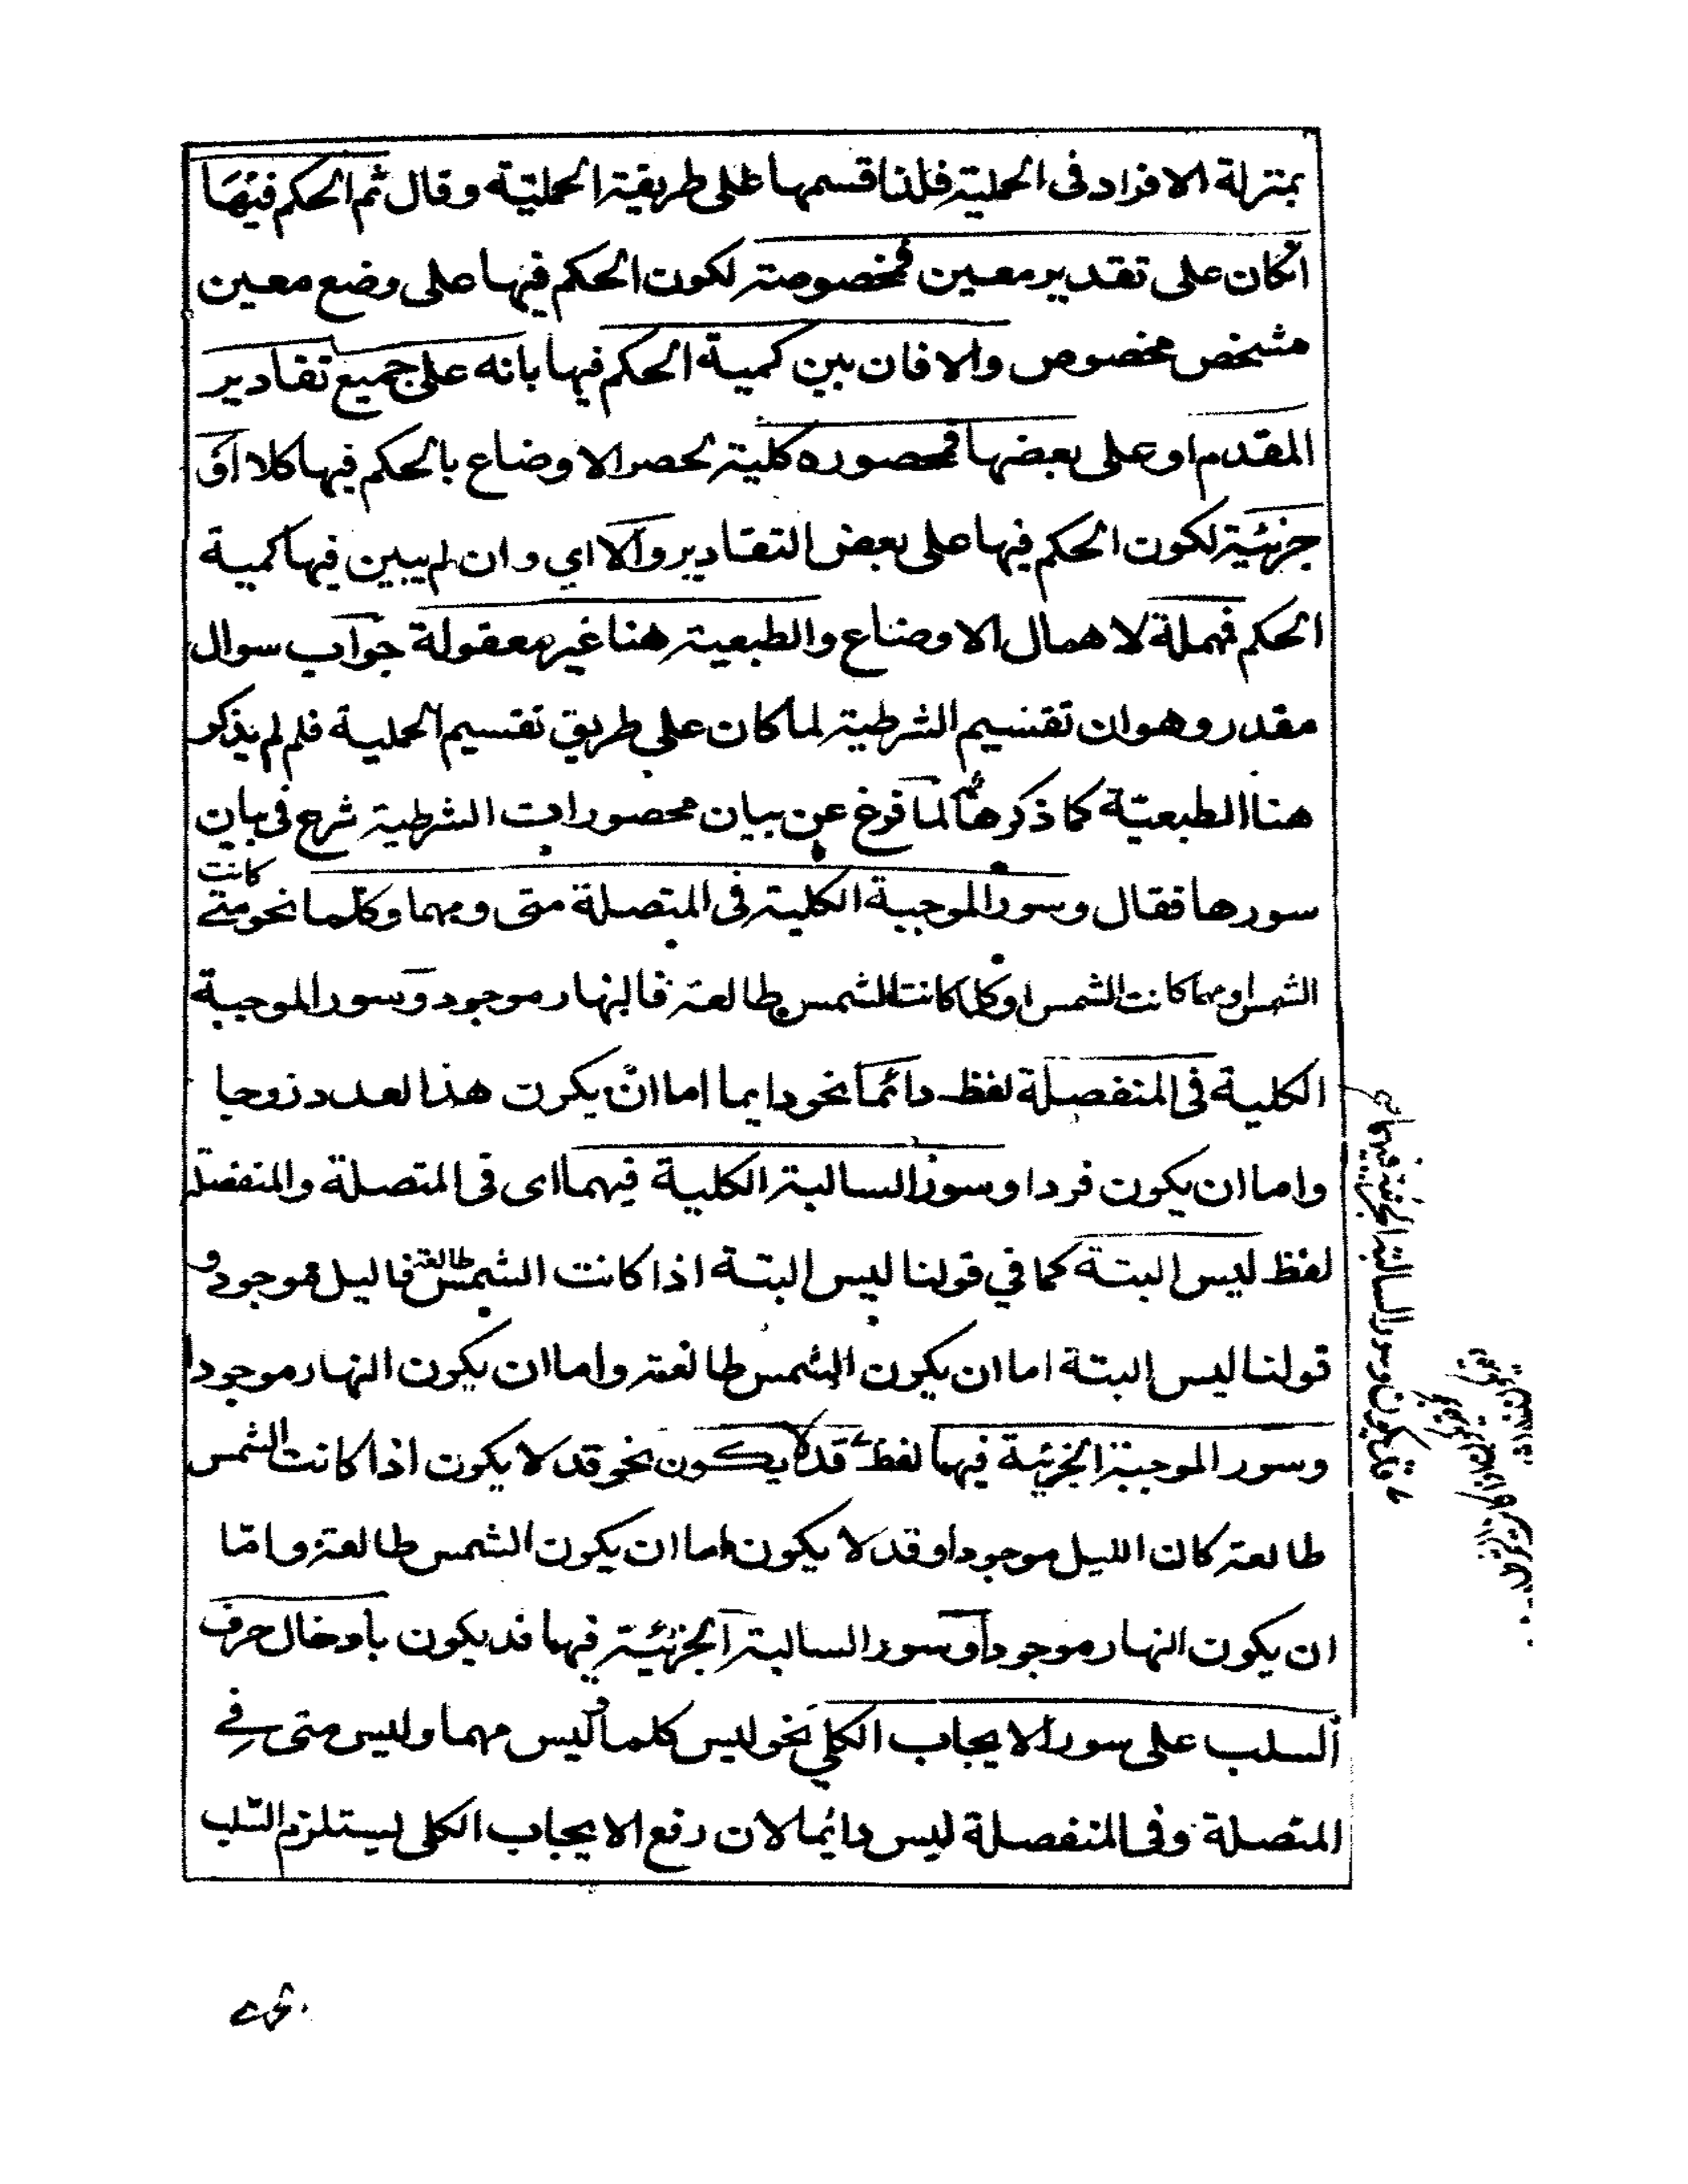 بمنزلة الافراد فى الحملية فلذا قسمها على طريقة الحملية وقال ثم الحكم فيها
انكان على تقدير معين فمخصوصة لكون الحكم فيها على وضع معين
مشخص مخصوص والا فان بين كمية الحكم فيها بانه على جميع تقادير
المقدم او على بعضها فمحصوره كلية لحصر الاوضاع بالحكم فيها كلا او
جزئية لكون الحكم فيها على بعض التقادير والا اي وان لم يبين فيها كمية
الحكم فمهملة لاهمال الاوضاع والطبعية هنا غير معقولة جواب سوال
مقدر وهو ان تقسيم الشرطية لما كان على طريق تقسيم الحملية فلم لم يذكر
هنا الطبعية كما ذكرها ثمه لما فرغ عن بيان محصورات الشرطية شرع فى بيان
سورها فقال وسور الموجبة الكلية فى المتصلة متى ومهما وكلما نحو متى كانت
الشمس او مهما كانت الشمس او كلما كانت الشمس طالعة فالنهار موجود وسور الموجبة
الكلية فى المنفصلة لفظ دائما نحو دايما اما ان يكون هذا العدد زوجا
واما ان يكون فردا وسور السالبة الكلية فيهما اى فى المتصلة والمنفصلة
لفظ ليس البتة كما في قولنا ليس البتة اذا كانت الشمس طالعة فاليل موجود و
قولنا ليس البتة اما ان يكون الشمس طالعة واما ان يكون النهار موجودا
وسور الموجبة الجزئية فيهما لفظ قد لا يكون نحو قد لا يكون اذا كانت الشمس
طالعة كان الليل موجودا وقد لا يكون اما ان يكون الشمس طالعة واما
ان يكون النهار موجودا وسور السالبة الجزئية فيهما قد يكون بادخال حرف
السلب على سور الايجاب الكلي نحو ليس كلما وليس مهما وليس متى في
المتصلة وفى المنفصلة ليس دائما لان رفع الايجاب الكلى ليستلزم السلب
وسور السالبة الجزئية فيهما